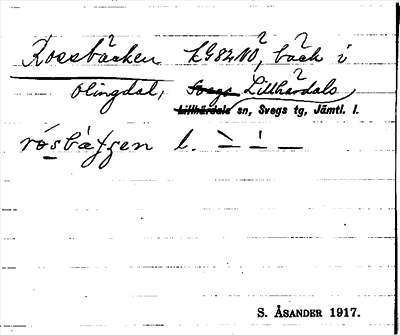 Rossbäcken kG82NO, bäck i
Olingdal, Svegs Lillhärdals
Lillhärdals sn, Svegs tg, Jämtl. l.
S. ÅSANDER 1917.